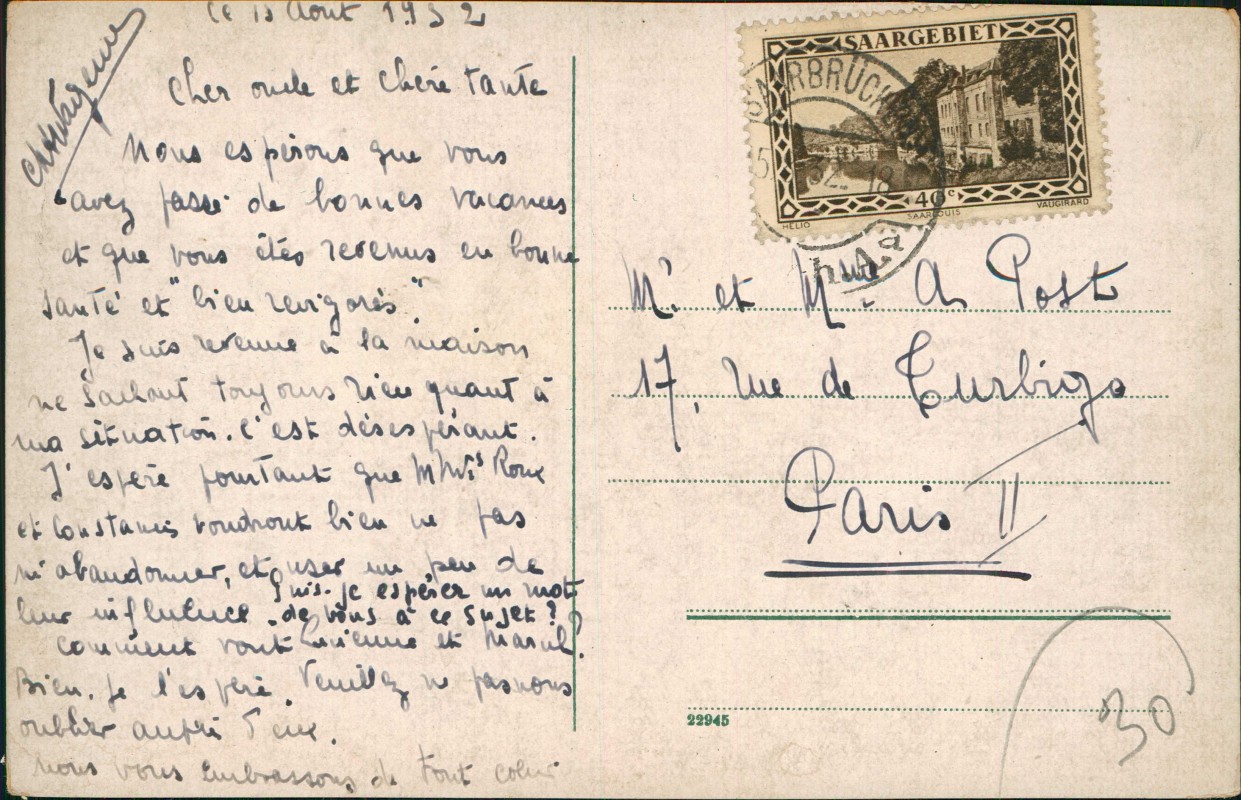 Le 15 Août 1932
Cher oncle et chère tante
Nous espérons que vous
avez passé de bonnes vacances
et que vous êtes revenus en bonne
santé et "bien revigorés".
Je suis revenue à la maison
ne sachant toujours rien quant à
ma situation. C'est désespérant.
J'espère pourtant que MMrs Roux
et Constants voudront bien ne pas
m'abandonner, et user un peu de
leur influence. Puis-je espérer un mot
de vous à ce sujet?
Comment vont Lucienne et Marcel?
Bien, je l'espère. Veuillez ne pas nous
oublier auprès d'eux.
Nous vous embrassons de tout coeur
SAARGEBIET
SAARBRÜCK
32. 18
40 c
SAARLOUIS
HELIO
VAUGIRARD
Mr et Mme A Post
17, rue de Turbigo
Paris II
22945
30